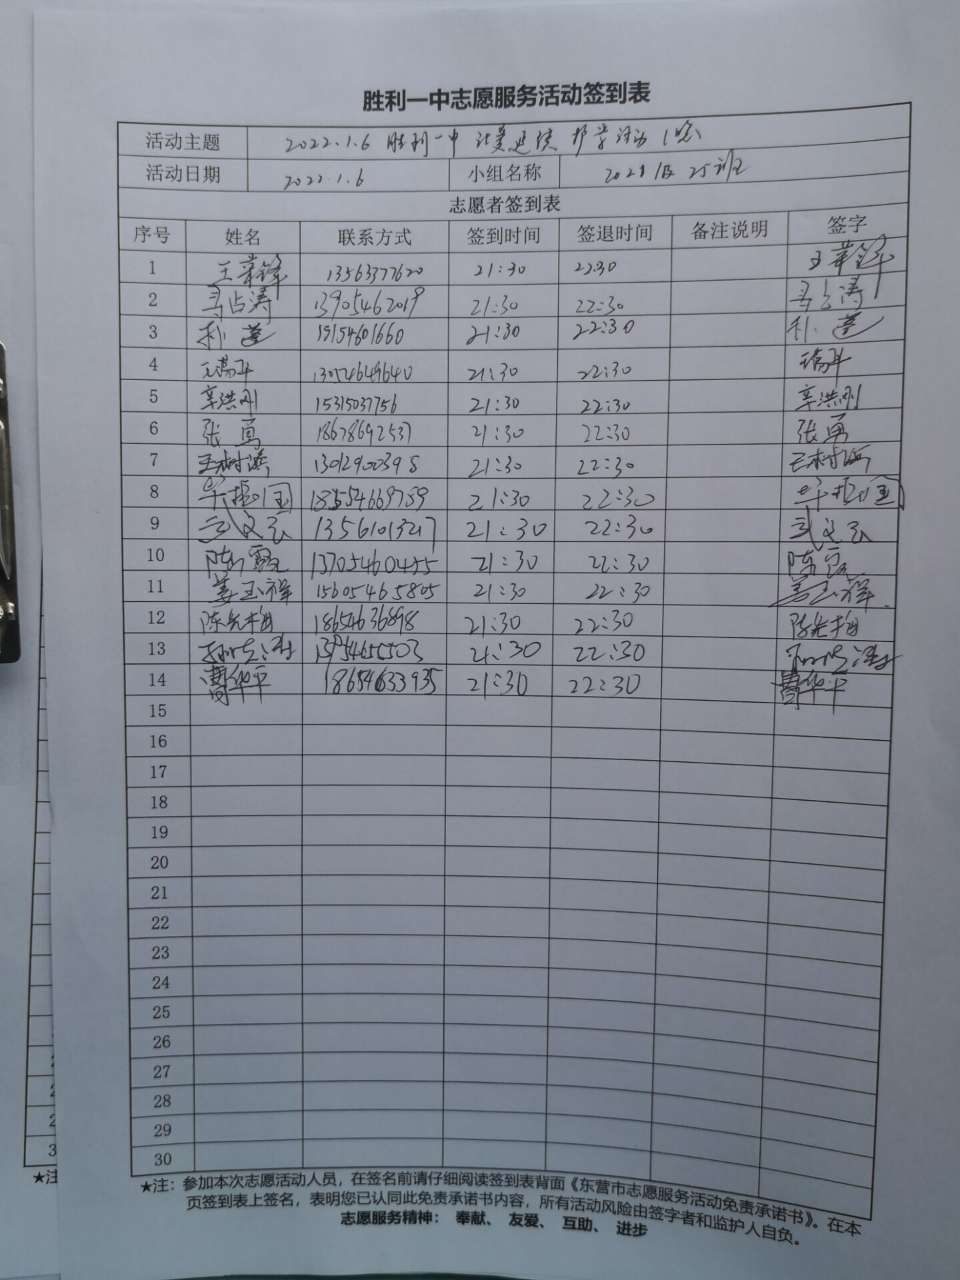 胜利一中志愿服务活动签到表
活动主题 2022.1.6 胜利一中 护学活动
活动日期 2022.1.6 小组名称 2021级25班
志愿者签到表
序号 姓名 联系方式 签到时间 签退时间 备注说明 签字
1 13563377620 21:30 22:30
2 马占涛 13905462019 21:30 22:30 马占涛
3 19154601660 21:30 22:30
4 13054649640 21:30 22:30
5 辛洪刚 15315037756 21:30 22:30 辛洪刚
6 张勇 18678692537 21:30 22:30 张勇
7 13012900398 21:30 22:30
8 18554669759 21:30 22:30
9 武文云 13561013217 21:30 22:30 武文云
10 13705460455 21:30 22:30
11 姜玉祥 15605465805 21:30 22:30 姜玉祥
12 18654636898 21:30 22:30
13 21:30 22:30
14 曹华平 18654633935 21:30 22:30 曹华平
15
16
17
18
19
20
21
22
23
24
25
26
27
28
29
30
★注：参加本次志愿活动人员，在签名前请仔细阅读签到表背面《东营市志愿服务活动免责承诺书》。在本
页签到表上签名，表明您已认同此免责承诺书内容，所有活动风险由签字者和监护人自负。
志愿服务精神： 奉献、 友爱、 互助、 进步